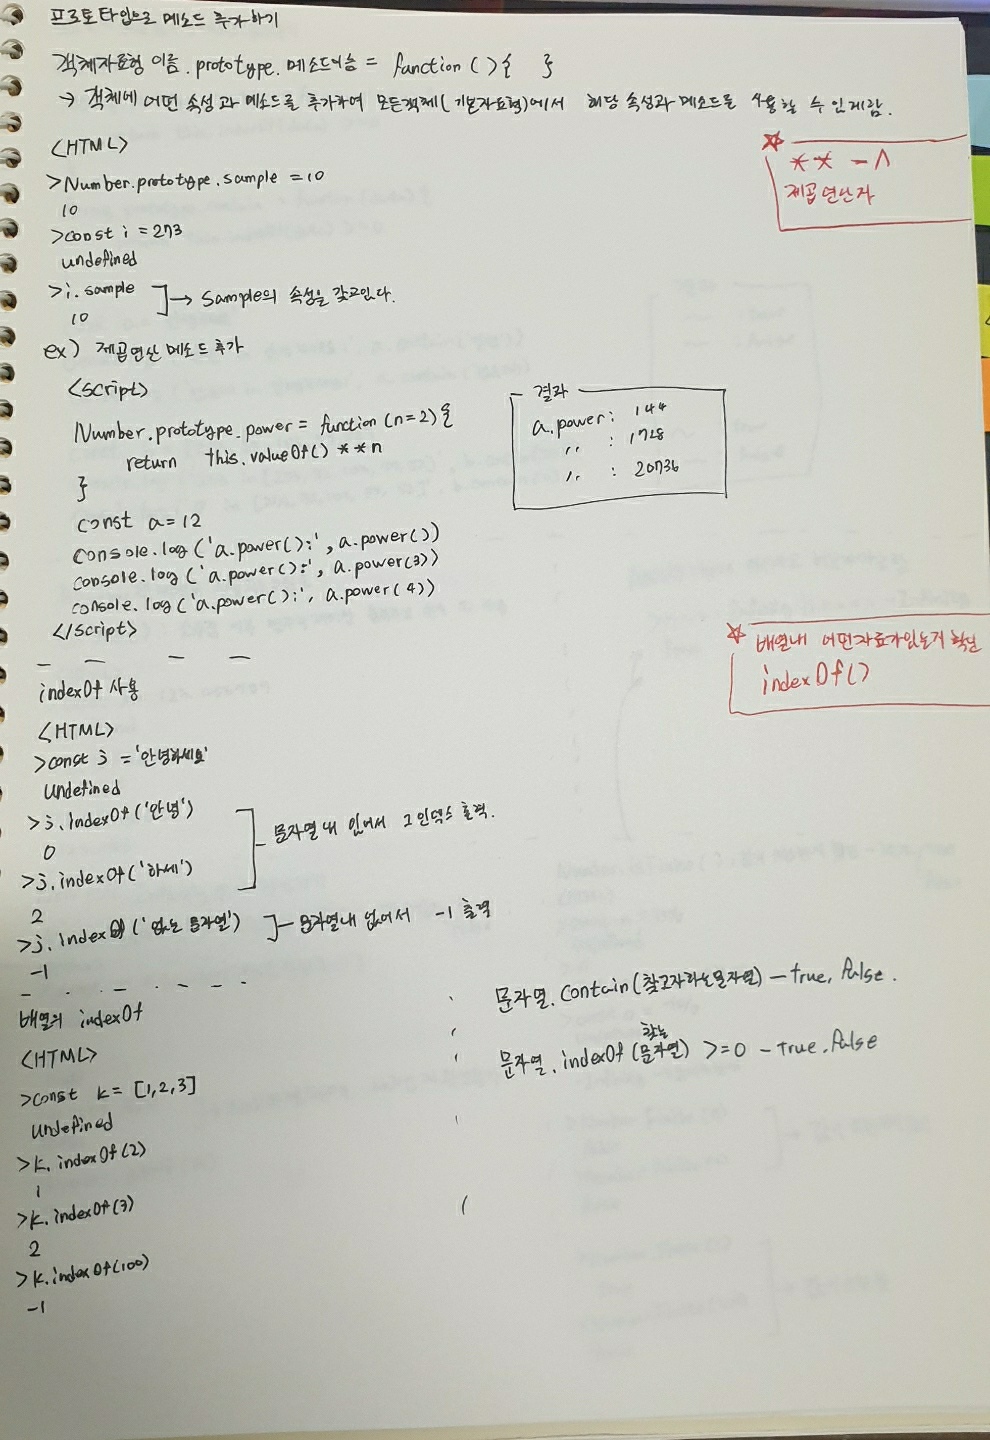 프로토타입으로 메소드 추가하기
객체자료형 이름.prototype.메소드이름 = function () { }
→ 객체에 어떤 속성과 메소드를 추가하여 모든객체(기본자료형)에서 해당 속성과 메소드를 사용할 수 있게함.
<HTML>
>Number.prototype.sample = 10
10
>const i = 273
undefined
>i.sample
10
→ Sample의 속성을 갖고있다.
☆ ** - ^
제곱연산자
ex) 제곱연산 메소드 추가
<script>
Number.prototype.power = function (n=2) {
return this.valueOf() ** n
}
const a = 12
console.log('a.power():', a.power())
console.log('a.power():', a.power(3))
console.log('a.power():', a.power(4))
</script>
결과
a.power: 144
〃 : 1728
〃 : 20736
☆ 배열내 어떤자료가있는지 확인
indexOf()
indexOf 사용
<HTML>
>const j = '안녕하세요'
undefined
>j.indexOf('안녕')
0
>j.indexOf('하세')
2
문자열 내 있어서 그 인덱스 출력.
>j.indexOf('없는 문자열')
-1
문자열내 없어서 -1 출력
배열의 indexOf
<HTML>
>const k = [1,2,3]
undefined
>k.indexOf(2)
1
>k.indexOf(3)
2
>k.indexOf(100)
-1
문자열.contain(찾고자하는문자열) - true, false.
찾는
문자열.indexOf(문자열) >=0 - true.false